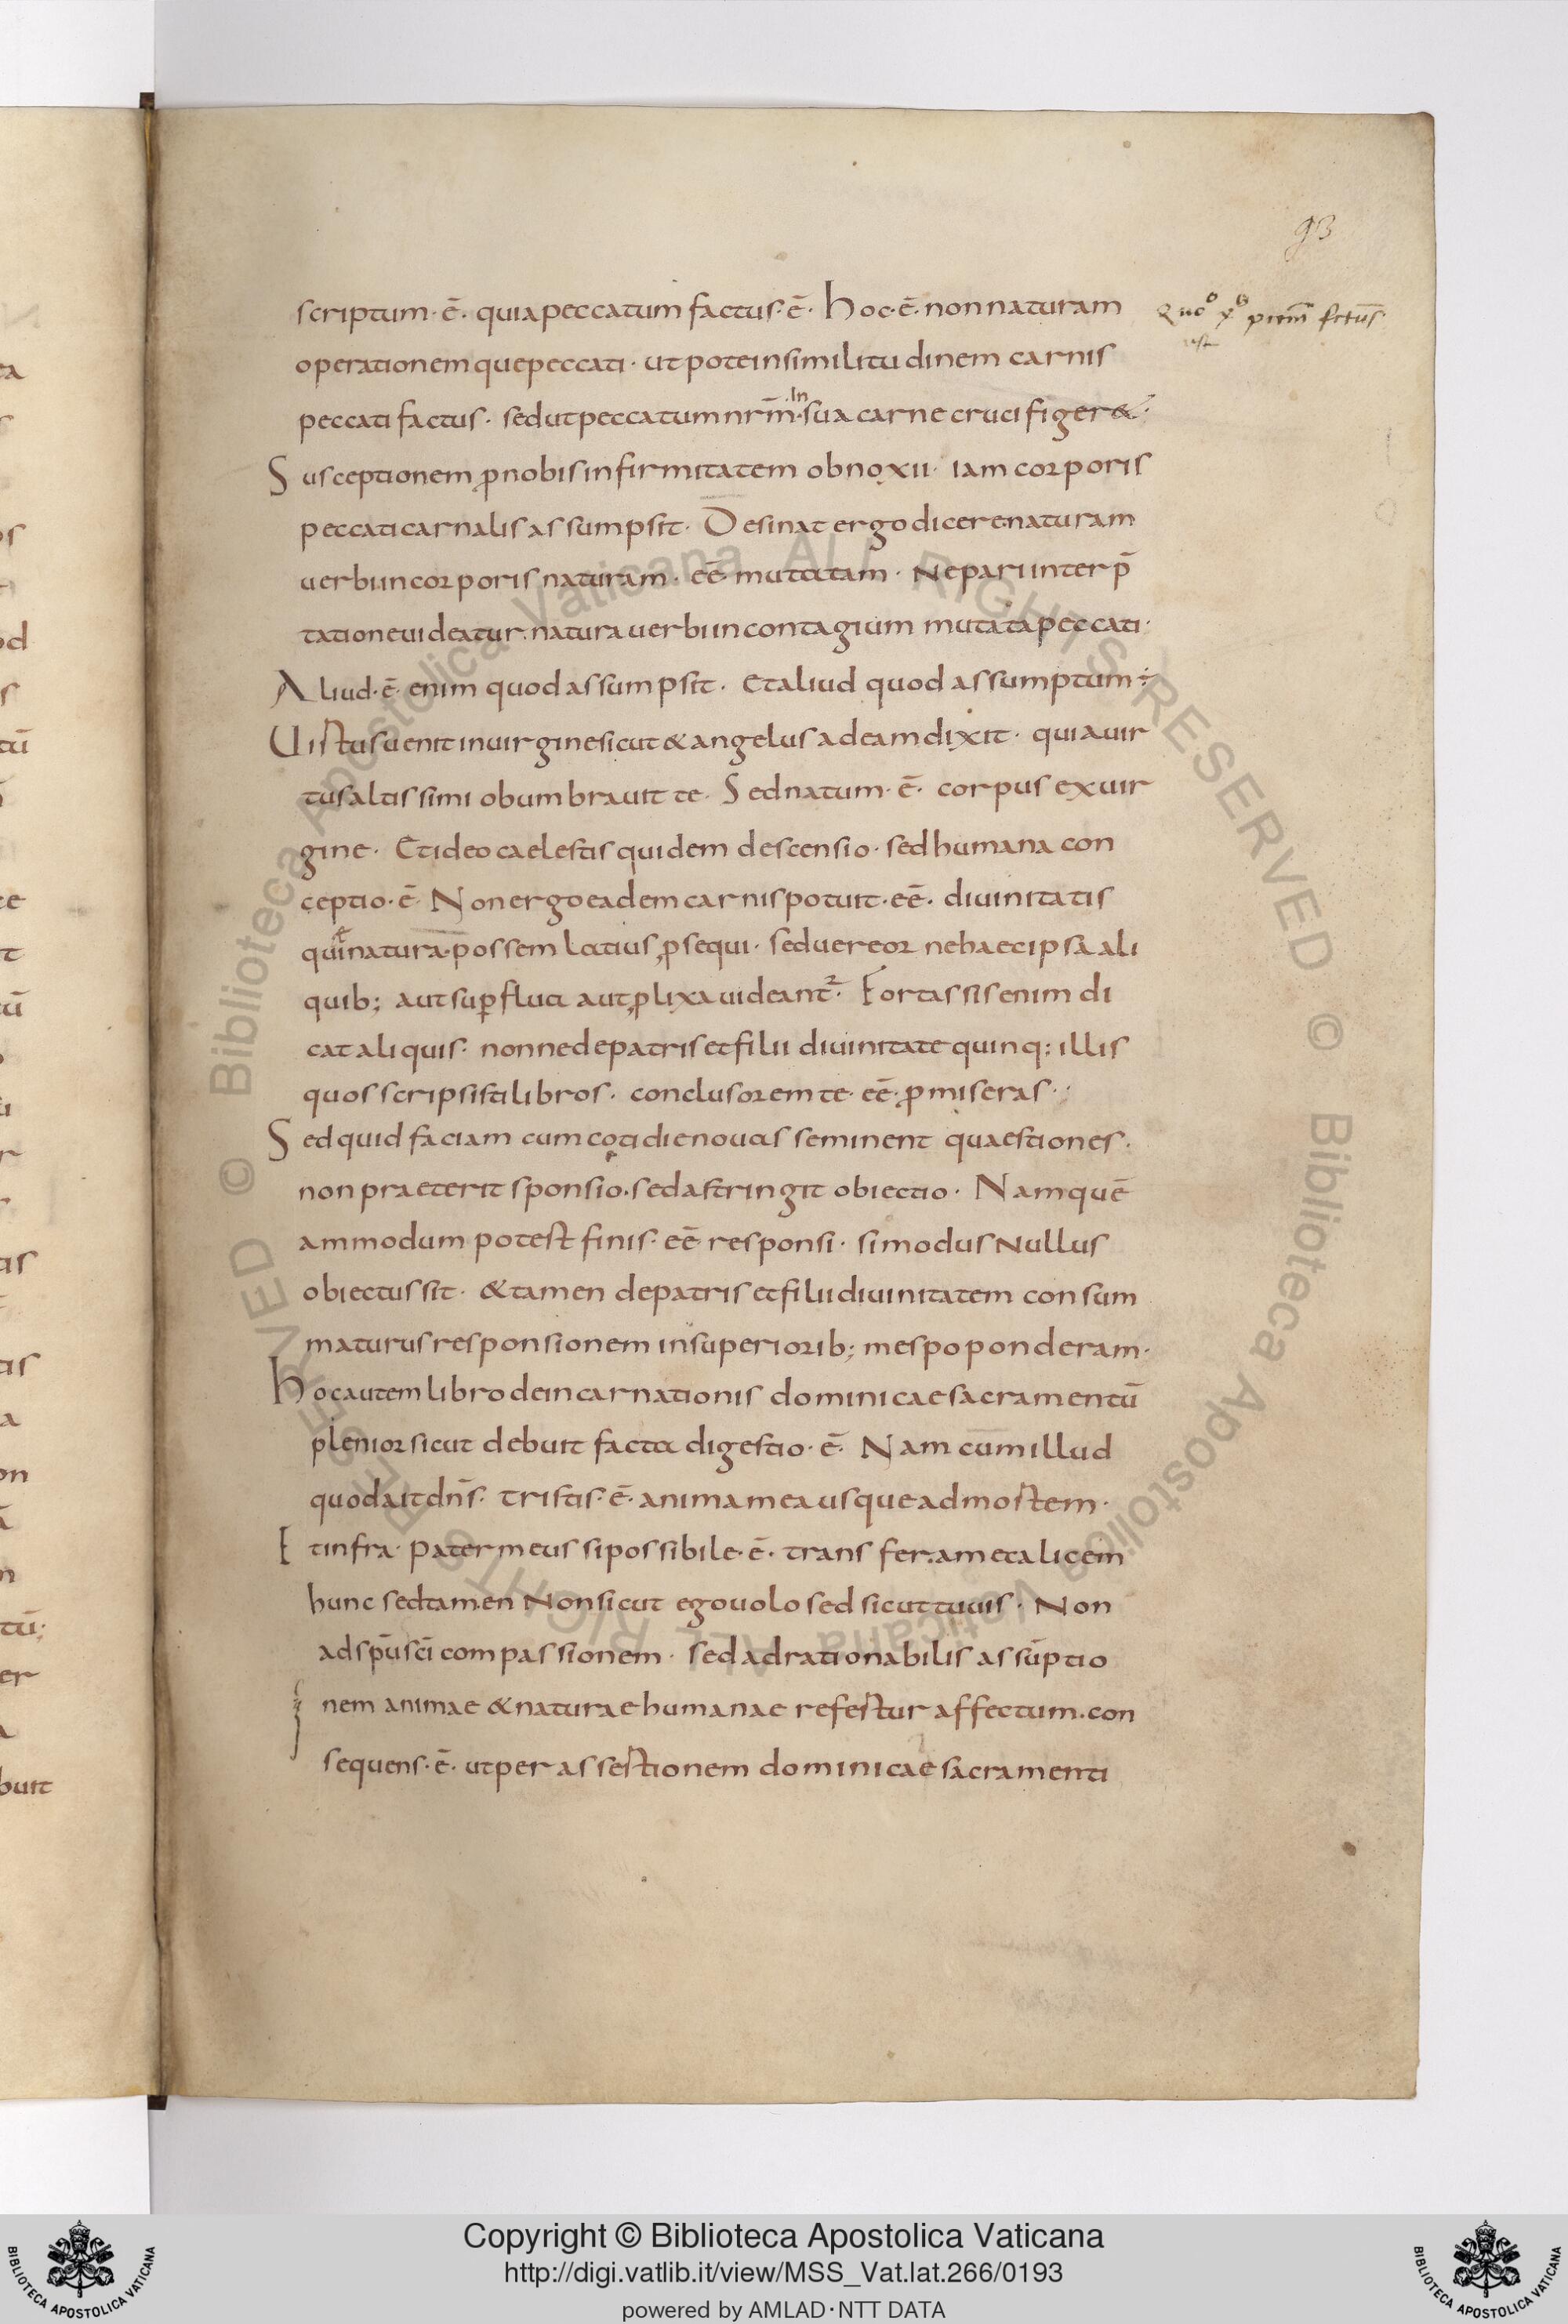 93
scriptum·ē· quia peccatum factus·ē· hoc·ē· non naturam
Quoo xo pccm fctus
est
operationemque peccati· ut pote in similitudinem carnis
peccati factus· sed ut peccatum nrm̄· In sua carne crucifiger&·
Susceptionem ꝓ nobis infirmitatem obnoxii· iam corporis
peccati carnalis assumpsit· Desinat ergo dicere naturam
uerbi in corporis naturam· eē· mutatam· Ne pari interp̄
tatione uideatur natura uerbi in contagium mutata peccati·
Aliud·ē· enim quod assumpsit· Et aliud quod assumptum÷
Uirtus uenit in uirgine sicut & angelus ad eam dixit· quia uir
tus altissimi obumbrauit te· Sed natum·ē· corpus ex uir
gine· Et ideo caelestis quidem descensio· sed humana con
ceptio·ē· Non ergo eadem carnis potuit·eē· diuinitatis
qui natura· possem latius ꝓsequi· sed uereor ne haec ipsa ali
quib; aut suꝑflua aut ꝓlixa uideant· Fortassis enim di
cat aliquis· nonne de patris et filii diuinitate quinq; illis
quos scripsisti libros· conclusorem te· eē· ꝓmiseras·
Sed quid faciam cum cotidie nouas seminent quaestiones·
non praeterit sponsio· sed astringit obiectio· Nam quē
ammodum potest finis· eē responsi· si modus Nullus
obiectus sit· & tamen de patris et filii diuinitatem consum
maturus responsionem in superiorib; me spoponderam·
hoc autem libro de incarnationis dominicae sacramentū
plenior sicut debuit facta digestio·ē· Nam cum illud
quod ait dn̄s· tristis·ē· anima mea usque ad mortem·
Et infra· pater meus si possibile·ē· transfer a me calicem
hunc sed tamen Non sicut ego uolo sed sicut tu uis· Non
ad sp̄us sc̄i compassionem· sed ad rationabilis assūptio
nem animae & naturae humanae refertur affectum· con
sequens·ē· ut per assertionem dominicae sacramenti
© Biblioteca Apostolica Vaticana ALL RIGHTS RESERVED © Biblioteca Apostolica Vaticana ALL RIGHTS RESERVED
Copyright © Biblioteca Apostolica Vaticana
http://digi.vatlib.it/view/MSS_Vat.lat.266/0193
powered by AMLAD·NTT DATA
BIBLIOTECA APOSTOLICA VATICANA
BIBLIOTECA APOSTOLICA VATICANA